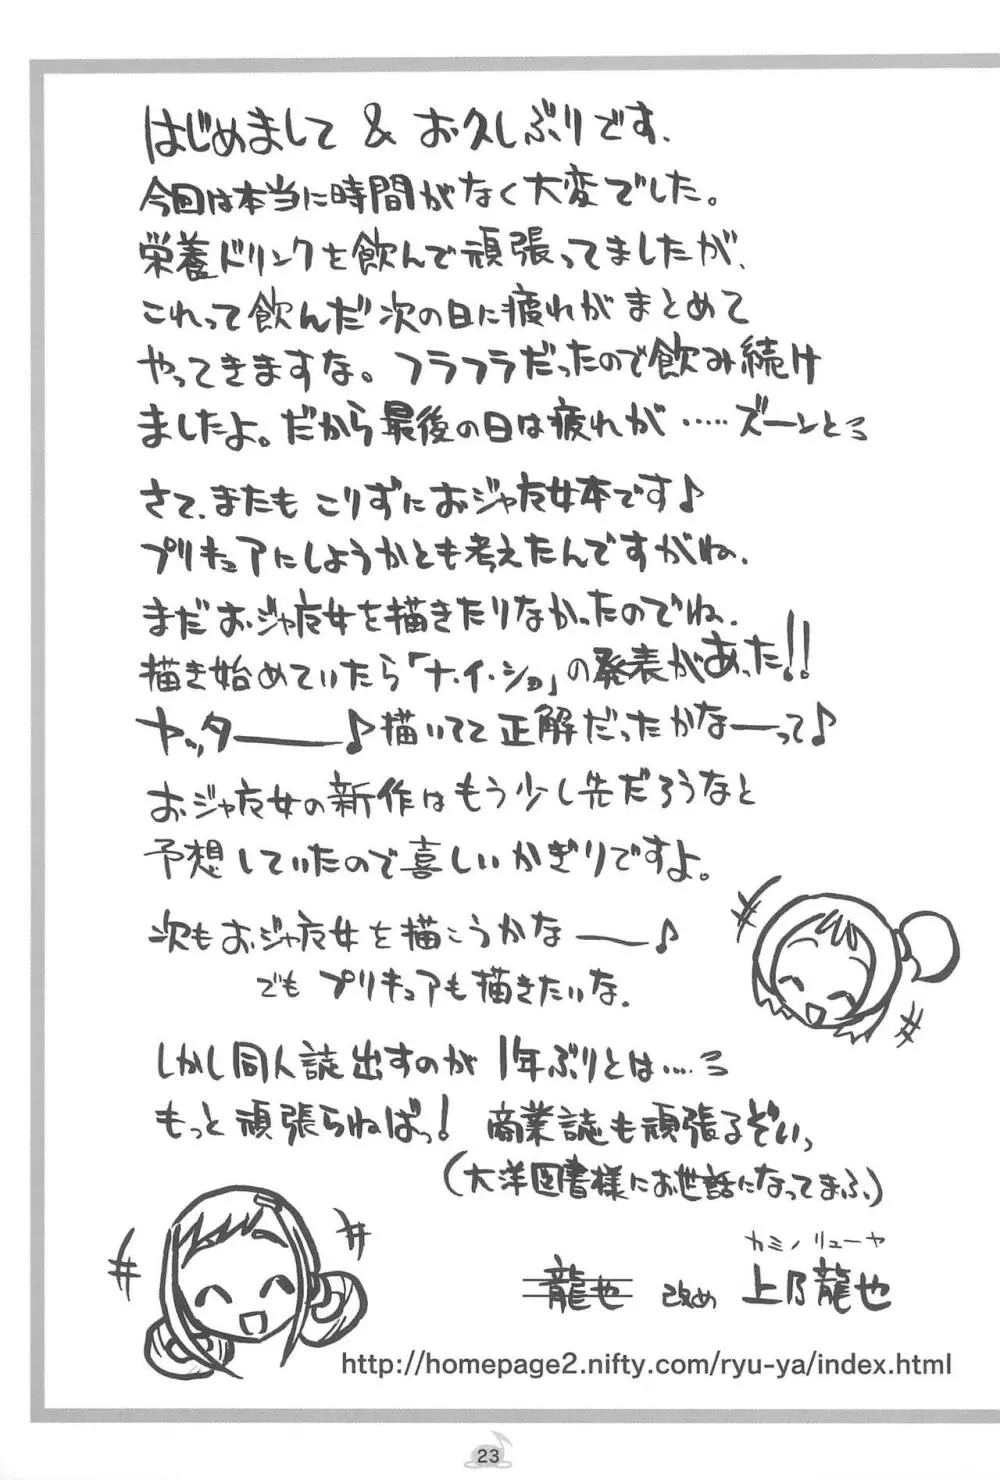 はじめまして & お久しぶりです、
今回は本当に時間がなく大変でした。
栄養ドリンクを飲んで頑張ってましたが、
これって飲んだ次の日に疲れがまとめて
やってきますな。フラフラだったので飲み続け
ましたよ。だから最後の日は疲れが……ズーンとミ
さて、またもこりずにおジャ魔女本です♪
プリキュアにしようかとも考えたんですがね、
まだおジャ魔女を描きたりなかったのでね、
描き始めていたら「ナ・イ・ショ」の発表があった!!
ヤッター――♪描いてて正解だったかなーって♪
おジャ魔女の新作はもう少し先だろうなと
予想していたので喜しいかぎりですよ。
次もおジャ魔女を描こうかな――♪
でもプリキュアも描きたいな、
しかし同人誌出すのが1年ぶりとは……ミ
もっと頑張らねばっ! 商業誌も頑張るぞいっ
(大洋図書様にお世話になってまふ)
カミノリューヤ
龍也 改め 上乃龍也
http://homepage2.nifty.com/ryu-ya/index.html
23